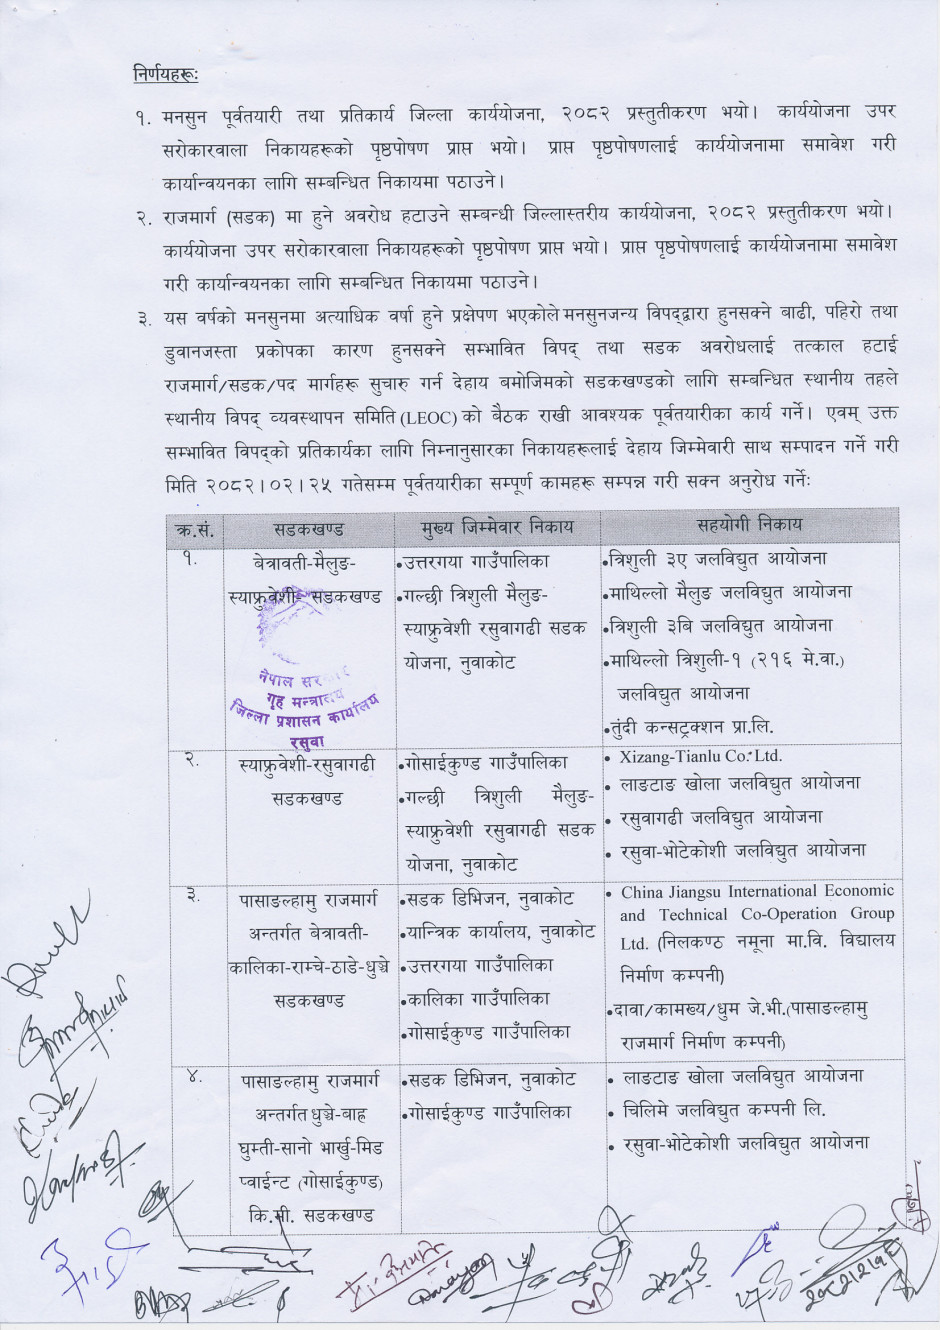 निर्णयहरूः
१. मनसुन पूर्वतयारी तथा प्रतिकार्य जिल्ला कार्ययोजना, २०८२ प्रस्तुतीकरण भयो। कार्ययोजना उपर
सरोकारवाला निकायहरूको पृष्ठपोषण प्राप्त भयो। प्राप्त पृष्ठपोषणलाई कार्ययोजनामा समावेश गरी
कार्यान्वयनका लागि सम्बन्धित निकायमा पठाउने।
२. राजमार्ग (सडक) मा हुने अवरोध हटाउने सम्बन्धी जिल्लास्तरीय कार्ययोजना, २०८२ प्रस्तुतीकरण भयो।
कार्ययोजना उपर सरोकारवाला निकायहरूको पृष्ठपोषण प्राप्त भयो। प्राप्त पृष्ठपोषणलाई कार्ययोजनामा समावेश
गरी कार्यान्वयनका लागि सम्बन्धित निकायमा पठाउने।
३. यस वर्षको मनसुनमा अत्याधिक वर्षा हुने प्रक्षेपण भएकोले मनसुनजन्य विपद्द्वारा हुनसक्ने बाढी, पहिरो तथा
डुवानजस्ता प्रकोपका कारण हुनसक्ने सम्भावित विपद् तथा सडक अवरोधलाई तत्काल हटाई
राजमार्ग/सडक/पद मार्गहरू सुचारु गर्न देहाय बमोजिमको सडकखण्डको लागि सम्बन्धित स्थानीय तहले
स्थानीय विपद् व्यवस्थापन समिति (LEOC) को बैठक राखी आवश्यक पूर्वतयारीका कार्य गर्ने। एवम् उक्त
सम्भावित विपद्को प्रतिकार्यका लागि निम्नानुसारका निकायहरूलाई देहाय जिम्मेवारी साथ सम्पादन गर्ने गरी
मिति २०८२।०२।२५ गतेसम्म पूर्वतयारीका सम्पूर्ण कामहरू सम्पन्न गरी सक्न अनुरोध गर्नेः
क्र.सं. सडकखण्ड मुख्य जिम्मेवार निकाय सहयोगी निकाय
१. बेत्रावती-मैलुङ-
स्याफ्रुवेशी- सडकखण्ड
•उत्तरगया गाउँपालिका
•गल्छी त्रिशुली मैलुङ-
स्याफ्रुवेशी रसुवागढी सडक
योजना, नुवाकोट
•त्रिशुली ३ए जलविद्युत आयोजना
•माथिल्लो मैलुङ जलविद्युत आयोजना
•त्रिशुली ३बि जलविद्युत आयोजना
•माथिल्लो त्रिशुली-१ (२१६ मे.वा.)
जलविद्युत आयोजना
•तुंदी कन्सट्रक्शन प्रा.लि.
नेपाल सरकार
गृह मन्त्रालय
जिल्ला प्रशासन कार्यालय
रसुवा
२. स्याफ्रुवेशी-रसुवागढी
सडकखण्ड
•गोसाईकुण्ड गाउँपालिका
•गल्छी त्रिशुली मैलुङ-
स्याफ्रुवेशी रसुवागढी सडक
योजना, नुवाकोट
• Xizang-Tianlu Co. Ltd.
• लाङटाङ खोला जलविद्युत आयोजना
• रसुवागढी जलविद्युत आयोजना
• रसुवा-भोटेकोशी जलविद्युत आयोजना
३. पासाङल्हामु राजमार्ग
अन्तर्गत बेत्रावती-
कालिका-राम्चे-ठाडे-धुन्चे
सडकखण्ड
•सडक डिभिजन, नुवाकोट
•यान्त्रिक कार्यालय, नुवाकोट
•उत्तरगया गाउँपालिका
•कालिका गाउँपालिका
•गोसाईकुण्ड गाउँपालिका
• China Jiangsu International Economic
and Technical Co-Operation Group
Ltd. (निलकण्ठ नमूना मा.वि. विद्यालय
निर्माण कम्पनी)
•दावा/कामख्य/धुम जे.भी.(पासाङल्हामु
राजमार्ग निर्माण कम्पनी)
४. पासाङल्हामु राजमार्ग
अन्तर्गत धुन्चे-वाह्र
घुम्ती-सानो भार्खु-मिड
प्वाईन्ट (गोसाईकुण्ड)
कि.मी. सडकखण्ड
•सडक डिभिजन, नुवाकोट
•गोसाईकुण्ड गाउँपालिका
• लाङटाङ खोला जलविद्युत आयोजना
• चिलिमे जलविद्युत कम्पनी लि.
• रसुवा-भोटेकोशी जलविद्युत आयोजना